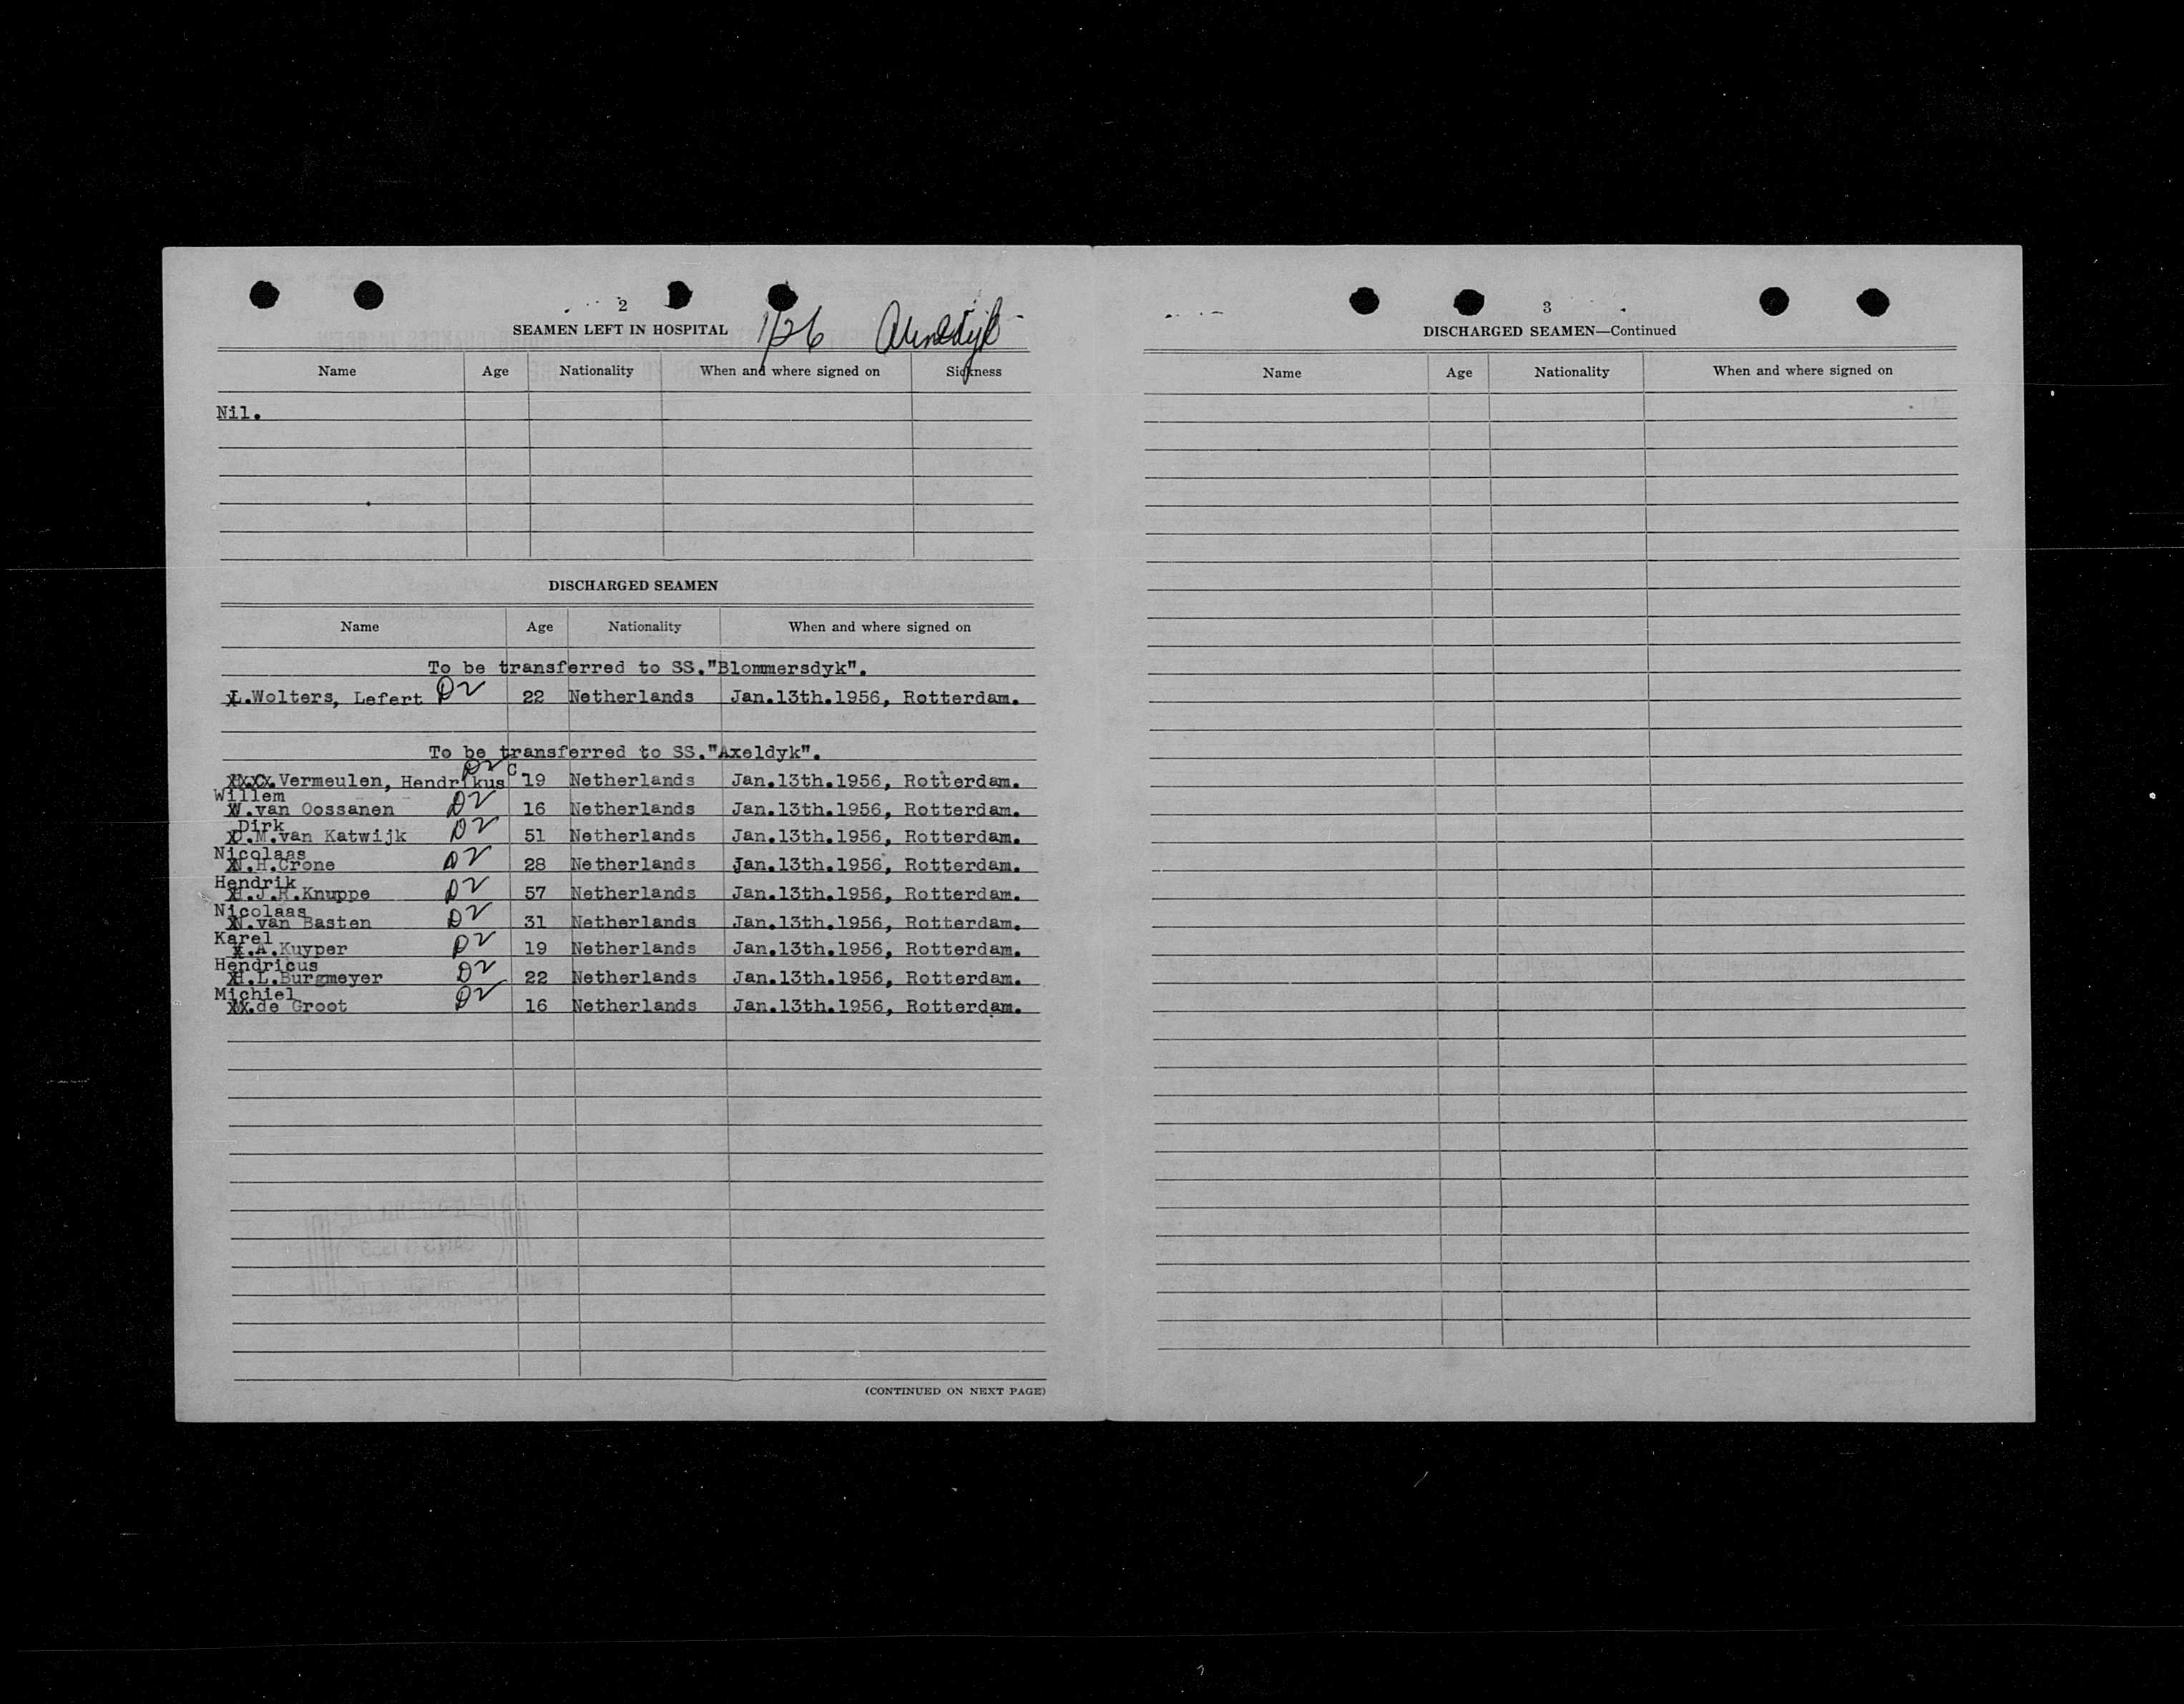 2
SEAMEN LEFT IN HOSPITAL
1/26
Name Age Nationality When and where signed on Sickness
Nil.
DISCHARGED SEAMEN
Name Age Nationality When and where signed on
To be transferred to SS."Blommersdyk".
L.Wolters, Lefert D2 22 Netherlands Jan.13th.1956, Rotterdam.
To be transferred to SS."Axeldyk".
D2 C
H.C.Vermeulen, Hendrikus 19 Netherlands Jan.13th.1956, Rotterdam.
Willem
W.van Oossanen D2 16 Netherlands Jan.13th.1956, Rotterdam.
Dirk
D.M.van Katwijk D2 51 Netherlands Jan.13th.1956, Rotterdam.
Nicolaas
N.H.Crone D2 28 Netherlands Jan.13th.1956, Rotterdam.
Hendrik
H.J.R.Knuppe D2 57 Netherlands Jan.13th.1956, Rotterdam.
Nicolaas
N.van Basten D2 31 Netherlands Jan.13th.1956, Rotterdam.
Karel
K.A.Kuyper D2 19 Netherlands Jan.13th.1956, Rotterdam.
Hendricus
H.L.Burgmeyer D2 22 Netherlands Jan.13th.1956, Rotterdam.
Michiel
M.de Groot D2 16 Netherlands Jan.13th.1956, Rotterdam.
(CONTINUED ON NEXT PAGE)
3
DISCHARGED SEAMEN—Continued
Name Age Nationality When and where signed on